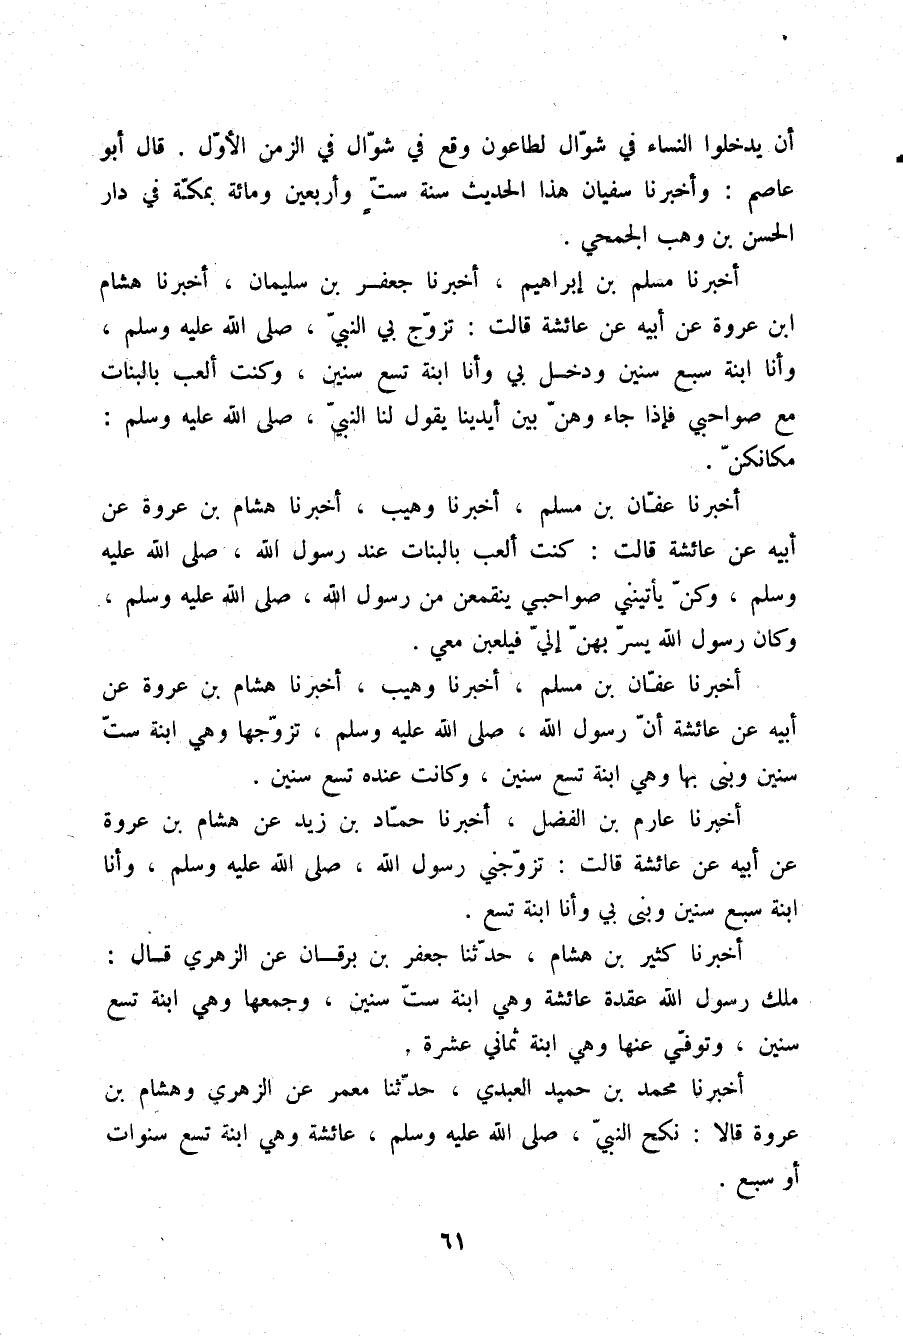 أن يدخلوا النساء في شوّال لطاعون وقع في شوّال في الزمن الأوّل . قال أبو
عاصم : وأخبرنا سفيان هذا الحديث سنة ستّ وأربعين ومائة بمكّة في دار
الحسن بن وهب الجمحي .
أخبرنا مسلم بن إبراهيم ، أخبرنا جعفـر بن سليمان ، أخبرنا هشام
ابن عروة عن أبيه عن عائشة قالت : تزوّج بي النبيّ ، صلى الله عليه وسلم ،
وأنا ابنة سبع سنين ودخـل بي وأنا ابنة تسع سنين ، وكنت ألعب بالبنات
مع صواحبي فإذا جاء وهنّ بين أيدينا يقول لنا النبيّ ، صلى الله عليه وسلم :
مكانكنّ .
أخبرنا عفّان بن مسلم ، أخبرنا وهيب ، أخبرنا هشام بن عروة عن
أبيه عن عائشة قالت : كنت ألعب بالبنات عند رسول الله ، صلى الله عليه
وسلم ، وكنّ يأتينني صواحبي ينقمعن من رسول الله ، صلى الله عليه وسلم ،
وكان رسول الله يسرّ بهنّ إليّ فيلعبن معي .
أخبرنا عفّان بن مسلم ، أخبرنا وهيب ، أخبرنا هشام بن عروة عن
أبيه عن عائشة أنّ رسول الله ، صلى الله عليه وسلم ، تزوّجها وهي ابنة ستّ
سنين وبنى بها وهي ابنة تسع سنين ، وكانت عنده تسع سنين .
أخبرنا عارم بن الفضل ، أخبرنا حمّاد بن زيد عن هشام بن عروة
عن أبيه عن عائشة قالت : تزوّجني رسول الله ، صلى الله عليه وسلم ، وأنا
ابنة سبع سنين وبنى بي وأنا ابنة تسع .
أخبرنا كثير بن هشام ، حدّثنا جعفر بن برقـان عن الزهري قـال :
ملك رسول الله عقدة عائشة وهي ابنة ستّ سنين ، وجمعها وهي ابنة تسع
سنين ، وتوفّي عنها وهي ابنة ثماني عشرة .
أخبرنا محمد بن حميد العبدي ، حدّثنا معمر عن الزهري وهشام بن
عروة قالا : نكح النبيّ ، صلى الله عليه وسلم ، عائشة وهي ابنة تسع سنوات
أو سبع .
٦١